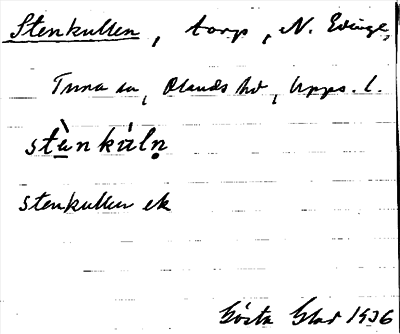 Stenkullen, torp, N. Edinge,
Tuna sn, Olands hd, Upps. l.
stànkúlṇ
stenkullen ek
Gösta Glad 1936